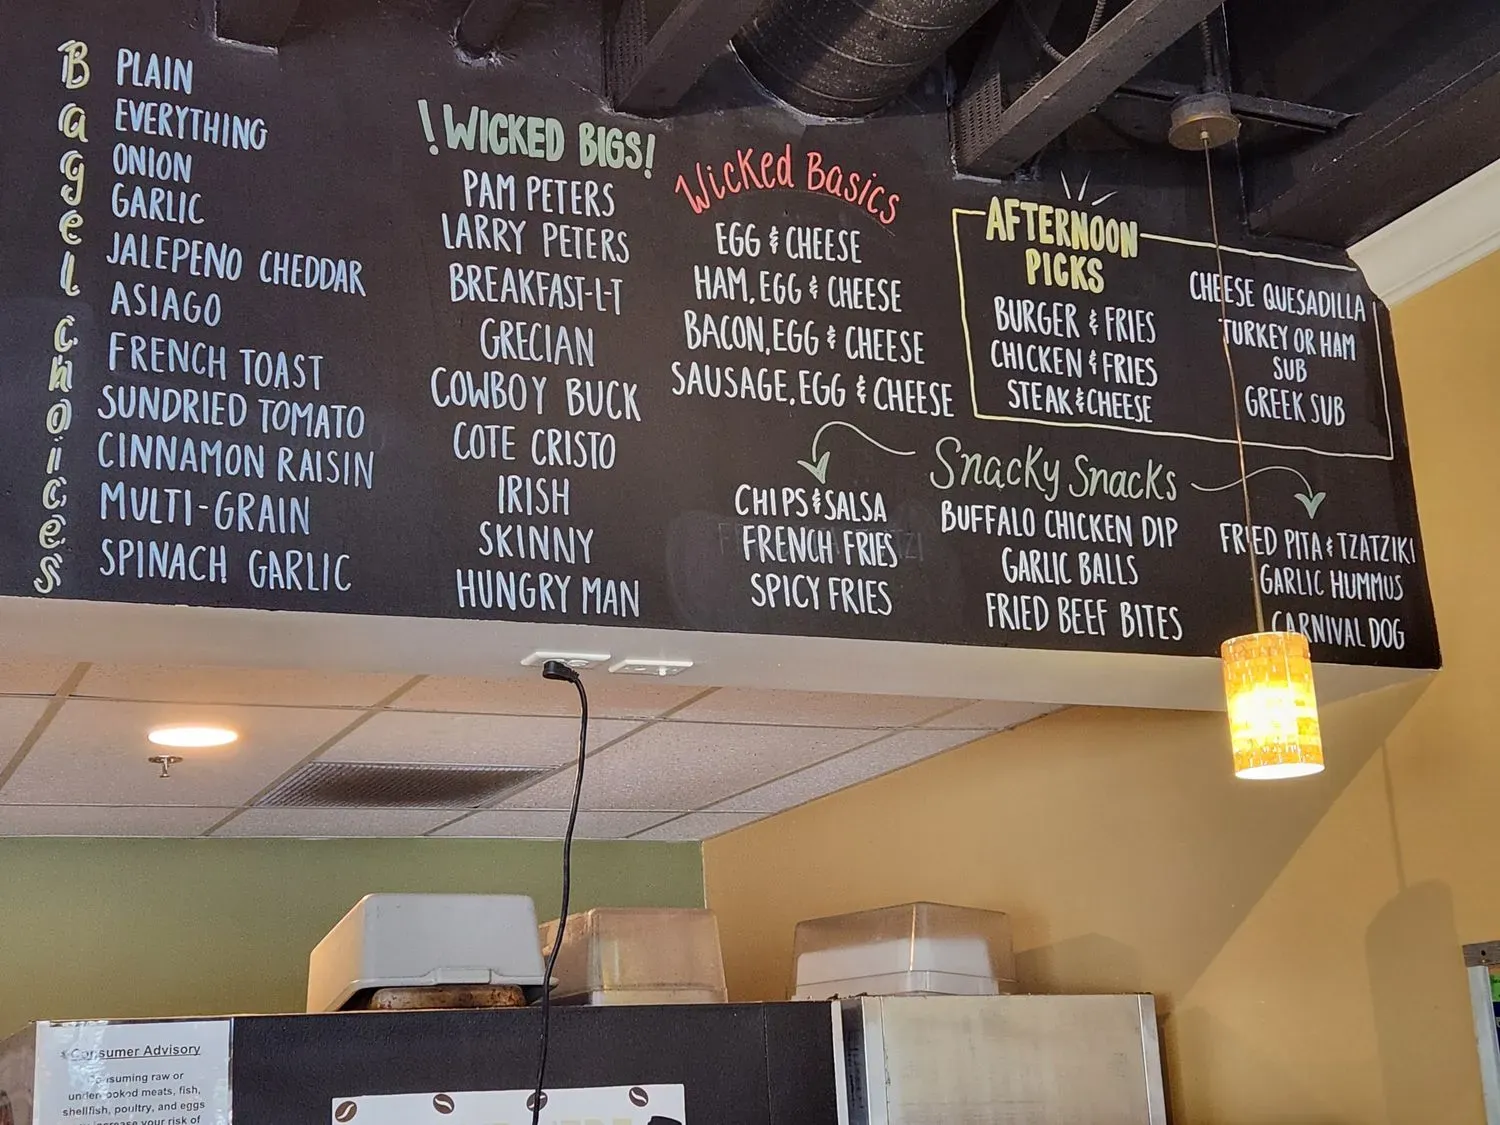 Bagel Choices
PLAIN
EVERYTHING
ONION
GARLIC
JALEPENO CHEDDAR
ASIAGO
FRENCH TOAST
SUNDRIED TOMATO
CINNAMON RAISIN
MULTI-GRAIN
SPINACH GARLIC
!WICKED BIGS!
PAM PETERS
LARRY PETERS
BREAKFAST-L-T
GRECIAN
COWBOY BUCK
COTE CRISTO
IRISH
SKINNY
HUNGRY MAN
Wicked Basics
EGG & CHEESE
HAM, EGG & CHEESE
BACON, EGG & CHEESE
SAUSAGE, EGG & CHEESE
AFTERNOON
PICKS
BURGER & FRIES
CHICKEN & FRIES
STEAK & CHEESE
CHEESE QUESADILLA
TURKEY OR HAM
SUB
GREEK SUB
Snacky Snacks
CHIPS & SALSA
FRENCH FRIES
SPICY FRIES
BUFFALO CHICKEN DIP
GARLIC BALLS
FRIED BEEF BITES
FRIED PITA & TZATZIKI
GARLIC HUMMUS
CARNIVAL DOG
* Consumer Advisory
Consuming raw or
undercooked meats, fish,
shellfish, poultry, and eggs
increase your risk of